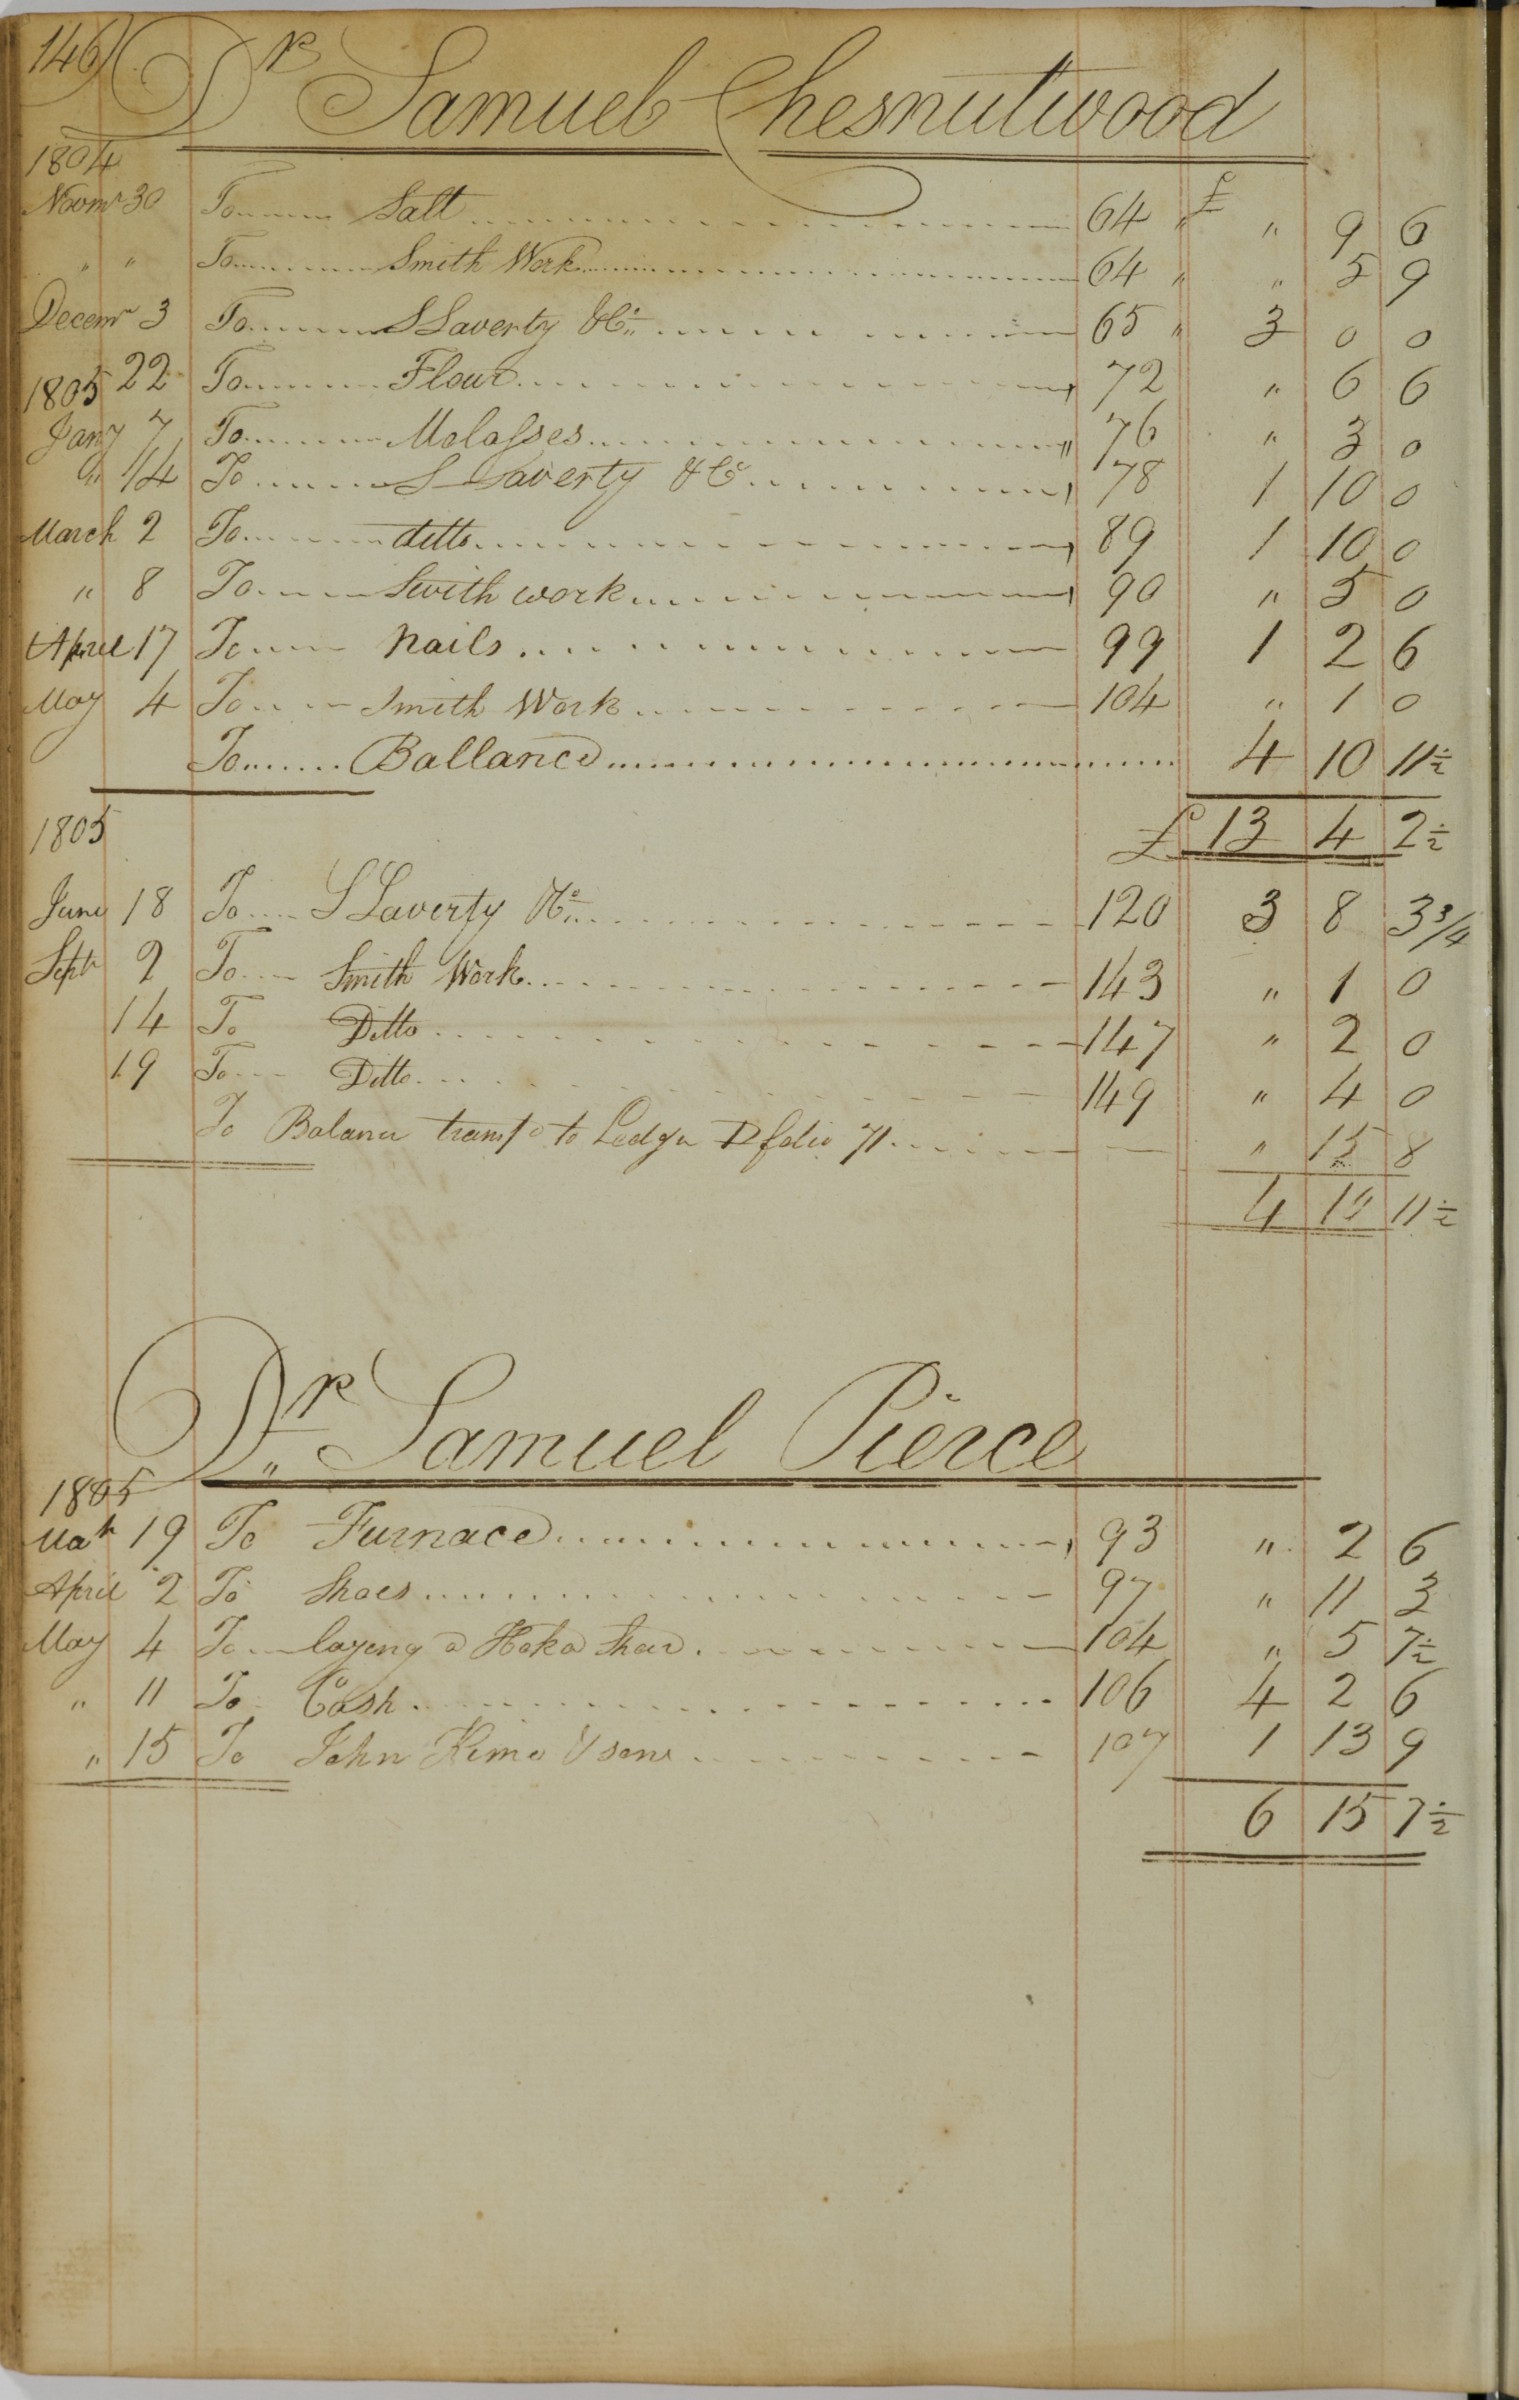 146 Dr Samuel Chesnutwood
1804
Novmr 30 To Salt 64 " £ " 9 6
" " To Smith Work 64 " " 5 9
Decemr 3 To S Laverty & Co 65 " 3 0 0
22 To Flour 72 " 6 6
1805
Jany 7 To Molasses 76 " 3 0
" 14 To S Laverty & Co 78 1 10 0
March 2 To ditto 89 1 10 0
" 8 To Smith work 90 " 5 0
April 17 To nails 99 1 2 6
May 4 To Smith Work 104 " 1 0
To Ballance 4 10 11½
£ 13 4 2½
1805
June 18 To S Laverty & Co 120 3 8 3 3/4
Septr 2 To Smith Work 143 " 1 0
14 To Ditto 147 " 2 0
19 To Ditto 149 " 4 0
To Balance transfd to Ledger D folio 71 " 15 8
4 11 11½
Dr Samuel Pierce
1805
Mah 19 To Furnace 93 " 2 6
April 2 To Shoes 97 " 11 3
May 4 To layeng a Shear 104 " 5 7½
" 11 To Cash 106 4 2 6
" 15 To John Kime & sons 107 1 13 9
6 15 7½